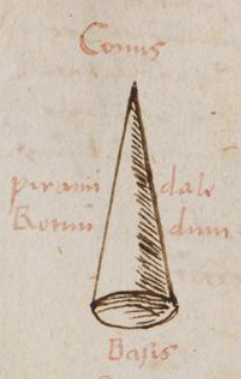 Conus
pirami dale
Rotun dum
Basis